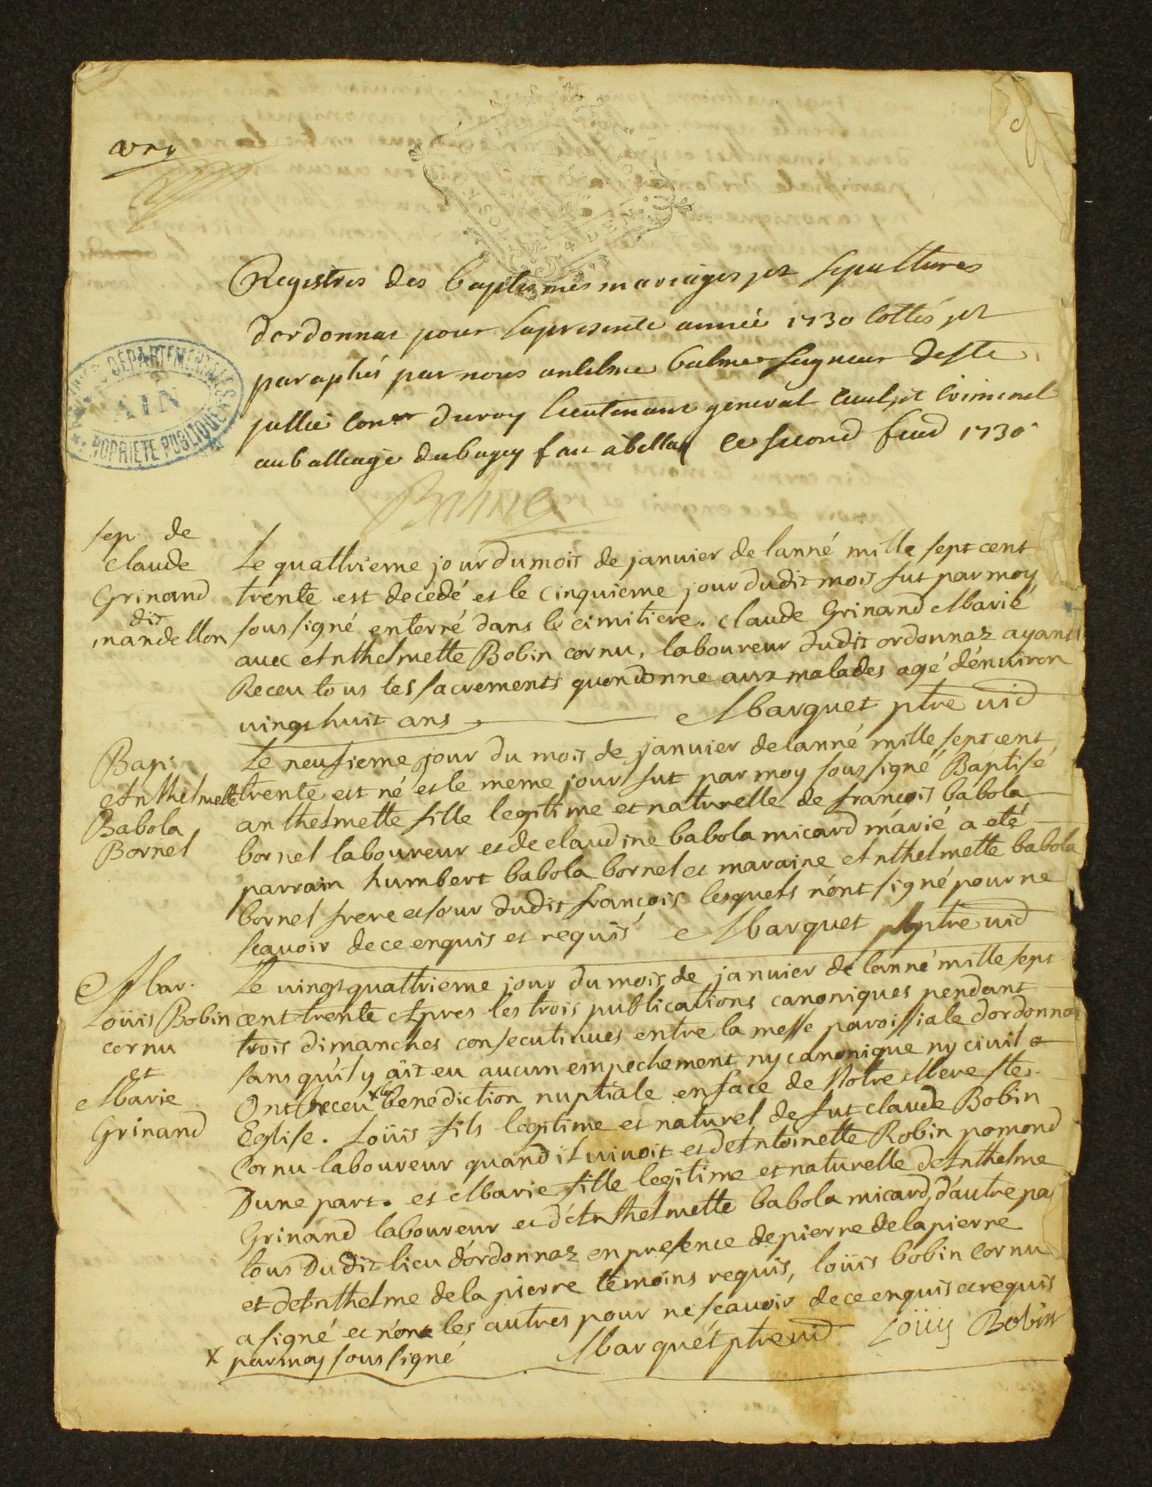 Registres des baptismes mariages et sepultures
dordonnat pour lapresente année 1730 cottés et
paraphés par nous antelme balme seigneur deste
julie conser duroy lieutenant general civil et criminel
aubalteage dubugey fait abellay ce second feud 1730
Balme
ARCHIVES DÉPARTEMENTALES
AIN
PROPRIÉTÉ PUBLIQUE
sep. de
claude
Grinand
dit
mandellon
Le quattrieme jour dumois de janvier de lanné mille sept cent
trente est decedé et le cinquieme jour dudit mois fut par moy
sous signé enterré dans le cimitiere. claude Grinand Marié
avec Anthelmette Bobin cornu, laboureur dudit ordonnaz ayant
Receu tous les sacrements quon donne aux malades agé dénviron
vingt huit ans Marquet ptre vic
Bap:
Anthelmette
Babola
Bornet
Le neufieme jour du mois de janvier de lanné mille sept cent
trente est né et le meme jour fut par moy sous signé Baptisé
anthelmette fille legitime et naturelle de francois babola
bornet laboureur et de claudine babola micard marié a eté
parrain humbert babola bornet et maraine Anthelmette babola
bornet frere et sour dudit francois lesquels n'ont signé pour ne
scavoir de ce enquis et requis Marquet ptre vic
Mar.
Loüis Bobin
cornu
et
Marie
Grinand
Le vingt quattrieme jour du mois de janvier de lanné mille sept
cent trente Apres les trois publications canoniques pendant
trois dimanches consecutives entre la messe paroissiale dordonnaz
sans quil y ait eu aucun empechement ny canonique ny civil
Ont Receu x la benediction nuptiale en face de Notre Mere ste
Eglise. Loüis fils legitime et naturel de fut claude Bobin
Cornu laboureur quand il vivoit et dAntoinette Robin pomond
Dune part. et Marie fille legitime et naturelle dAnthelme
Grinand laboureur et dAnthelmette babola micard, d'autre pa
tous Du dit lieu dordonnaz en presence de pierre de lapierre
et dAnthelme de la pierre temoins requis, loüis bobin cornu
a signé et n'ont les autres pour ne scavoir de ce enquis et requis
x par moy sous signé Marquet ptre vic Loüis Bobin